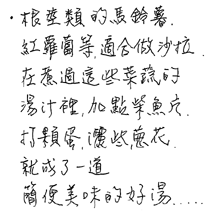 ·根莖類的馬鈴薯.
紅蘿蔔等,適合做沙拉.
在煮過這些菜蔬的
湯汁裡,加點柴魚片.
打顆蛋,灑些蔥花.
就成了一道
簡便美味的好湯.....